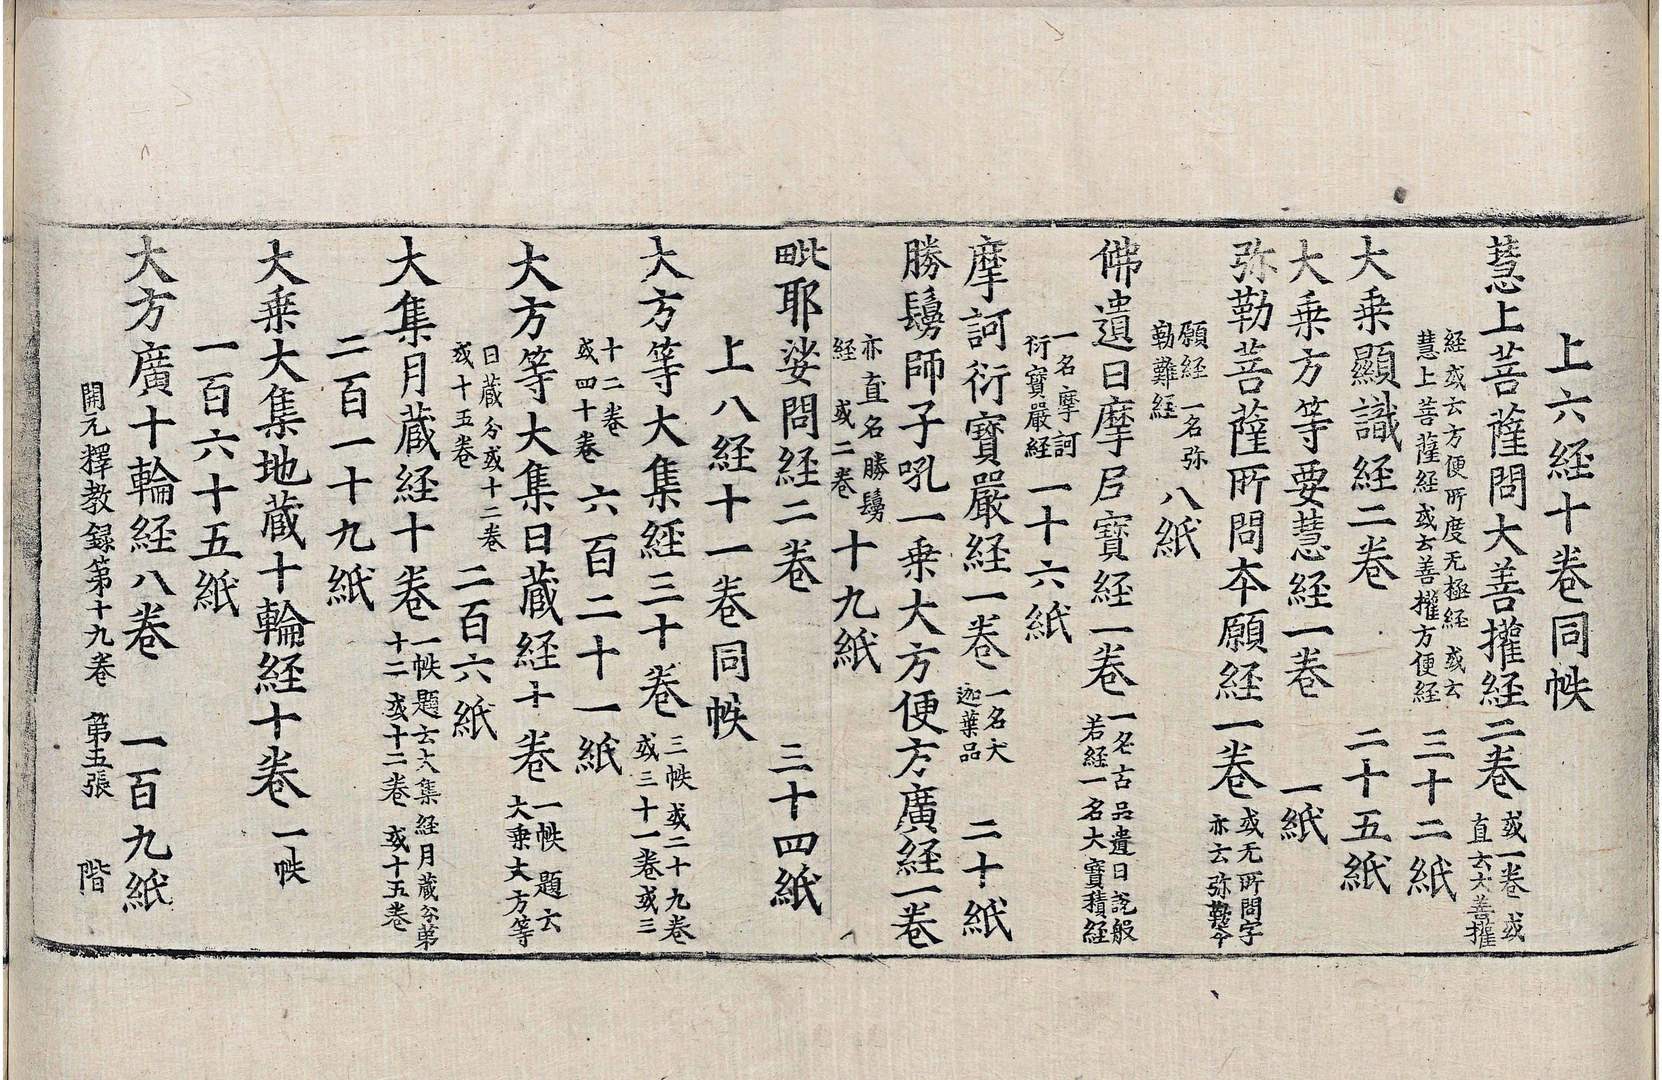 上六経十巻同帙
慧上菩薩問大善攉経二巻 或一巻 或直云大善攉
経或云方便所度无極経 或云慧上菩薩経或云善攉方便経 三十二紙
大乗顯識経二巻 二十五紙
大乗方等要慧経一巻 一紙
弥勒菩薩所問本願経一巻 或无所問字亦云弥勒今
願経 一名弥勒難経 八紙
佛遺日摩尼寶経一巻 一名古品遺日説般若経一名大寶積経
一名摩訶衍寶嚴経 一十六紙
摩訶衍寶嚴経一巻 一名大迦葉品 二十紙
勝鬘師子吼一乗大方便方廣経一巻
亦直名勝鬘経 或二巻 十九紙
毗耶娑問経二巻 三十四紙
上八経十一巻同帙
大方等大集経三十巻 三帙或二十九巻或三十一巻或三
十二巻或四十巻 六百二十一紙
大方等大集日蔵経十巻 一帙題云大乗大方等
日蔵分或十二巻或十五巻 二百六紙
大集月蔵経十巻 一帙題云大集経月蔵分第十二或十二巻 或十五巻
二百一十九紙
大乗大集地蔵十輪経十巻 一帙
一百六十五紙
大方廣十輪経八巻 一百九紙
開元釋教録第十九巻 第五張 階